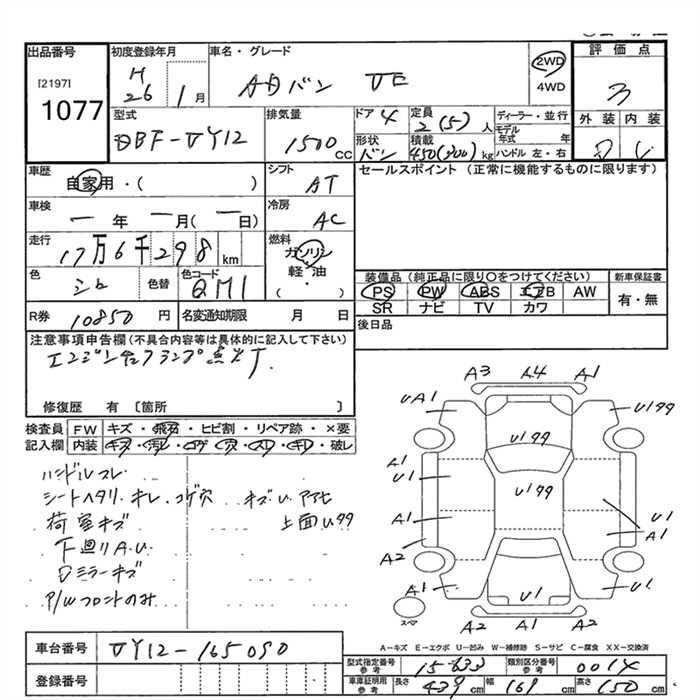 出品番号
[2197]
1077
初度登録年月
H
26 1月
車名・グレード
ADバン VE
2WD
4WD
評価点
3
外装 内装
D
型式
DBF-VY12
排気量
1500 CC
ドア 4
定員
2(5)人
形状
バン
積載
450(300)kg
ディーラー・並行
モデル年式 年
ハンドル 左・右
車歴
自家用・( )
シフト
AT
セールスポイント (正常に機能するものに限ります)
車検
一年 一月(一日)
冷房
AC
走行
17万6千298km
燃料
ガソリン
軽油
( ・ )
色
シロ
色替
色コード
QM1
装備品 (純正品に限り〇をつけてください)
PS PW ABS エアB AW
SR ナビ TV カワ
新車保証書
有・無
R券 10850円
名変通知期限 月 日
後日品
注意事項申告欄(不具合内容等は具体的に記入して下さい)
エンジン警告ランプ点灯。
修復歴 有〔箇所 〕
検査員記入欄
FW キズ・飛石・ヒビ割・リペア跡・×要
内装 キズ・汚レ・コゲ・穴・スレ・キレ・破レ
ハンドルスレ
シートヘタリ、キレ、コゲ穴 キズ、U、アアセ
荷室キズ 上面U99
下廻りA、U
Dミラーキズ
P/Wフロントのみ
A3 A4 A1
UA1 U199
U199
A1
U1
U199
A1 U1
A1
A2
A1 U1 U1
スペア
A2 A1 A2
A-キズ E-エクボ U-凹み W-補修跡 S-サビ C-腐食 XX-交換済
車台番号 VY12-165090
登録番号
型式指定番号 参考 15433
類別区分番号 参考 0014
車庫証明用 参考 長さ 439cm 幅 169cm 高さ 150cm